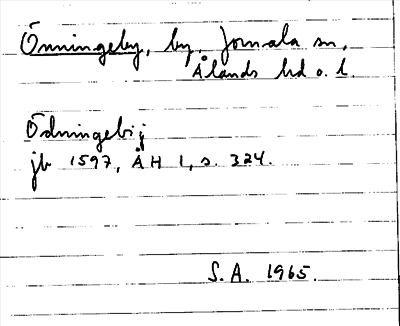 Önningeby, by, Jomala sn,
Ålands hd o. l.
Ödningebij
jb 1597, ÅH 1, s. 324.
S.A. 1965.